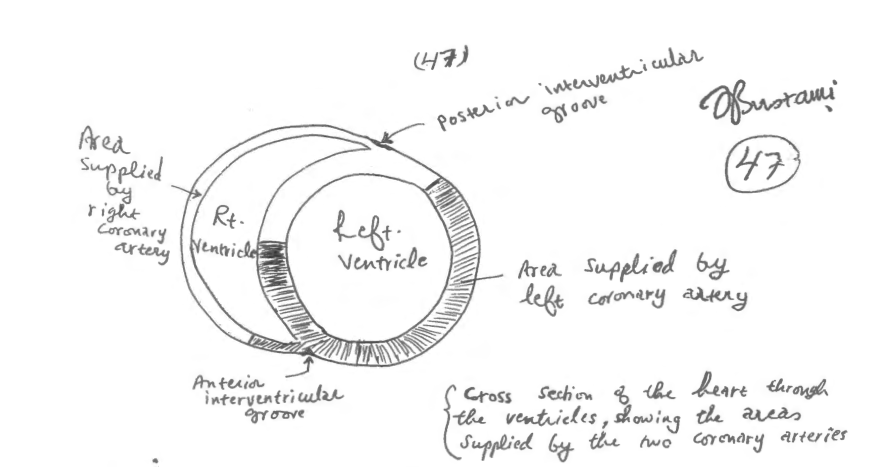 (47)
Posterior interventricular
groove
Bustami
47
Area
supplied
by
right
coronary
artery
Rt.
ventricle
Left.
ventricle
Area supplied by
left coronary artery
Anterior
interventricular
groove
Cross section of the heart through
the ventricles, showing the areas
supplied by the two coronary arteries